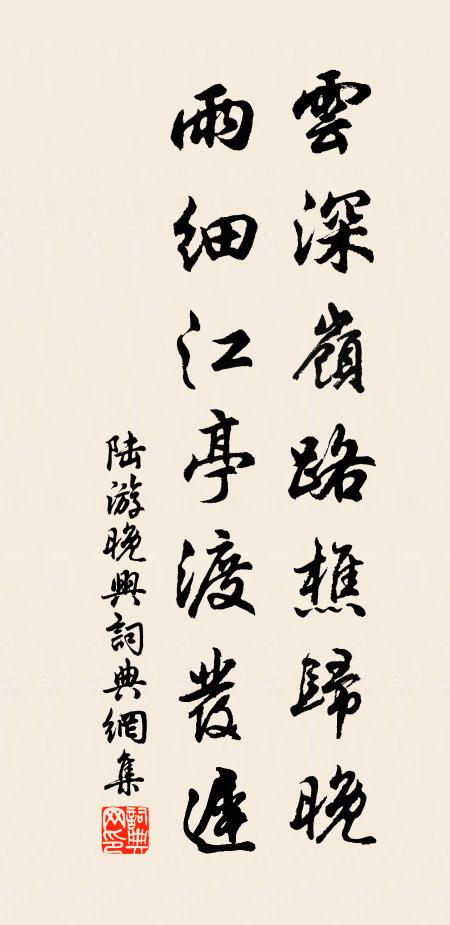 雲深嶺路樵歸晚
雨細江亭渡發遲
陸游晚興詞典網集
詞典网印